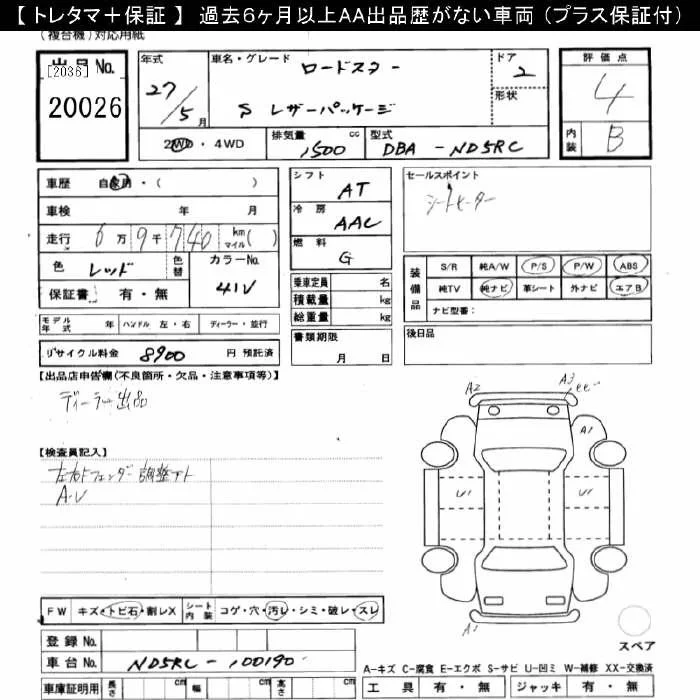 【 トレタマ＋保証 】 過去6ヶ月以上AA出品歴がない車両（プラス保証付）
(複合機)対応用紙
出品No.
[2036]
20026
年式 27/5月
車名・グレード ロードスター
S レザーパッケージ
ドア 2
形状
評価点 4
内装 B
2WD・4WD
排気量 1500 cc
型式 DBA-ND5RC
車歴 自家用・( )
車検 年 月
走行 6万9千740 km マイル( )
色 レッド 色替 カラーNo. 41V
保証書 有・無
シフト AT
冷房 AAC
燃料 G
乗車定員 名
積載量 kg
総重量 kg
書類期限
月 日
セールスポイント
シートヒーター
装備品
S/R 純A/W P/S P/W ABS
純TV 純ナビ 革シート 外ナビ エアB
ナビ型番:
後日品
モデル年式 年 ハンドル 左・右 ディーラー・並行
リサイクル料金 8900 円 預託済
【出品店申告欄(不良箇所・欠品・注意事項等)】
ディーラー出品
【検査員記入】
左右Fフェンダー調整アト
A・U
A2
A3
ee
A1
U1
U1
A1
スペア
FW キズ・トビ石・割レX シート内装 コゲ・穴・汚レ・シミ・破レ・スレ
登録No.
車台No. ND5RC-100190
車庫証明用 長さ cm 幅 cm 高さ cm
A-キズ C-腐食 E-エクボ S-サビ U-凹ミ W-補修 XX-交換済
工具 有・無 ジャッキ 有・無